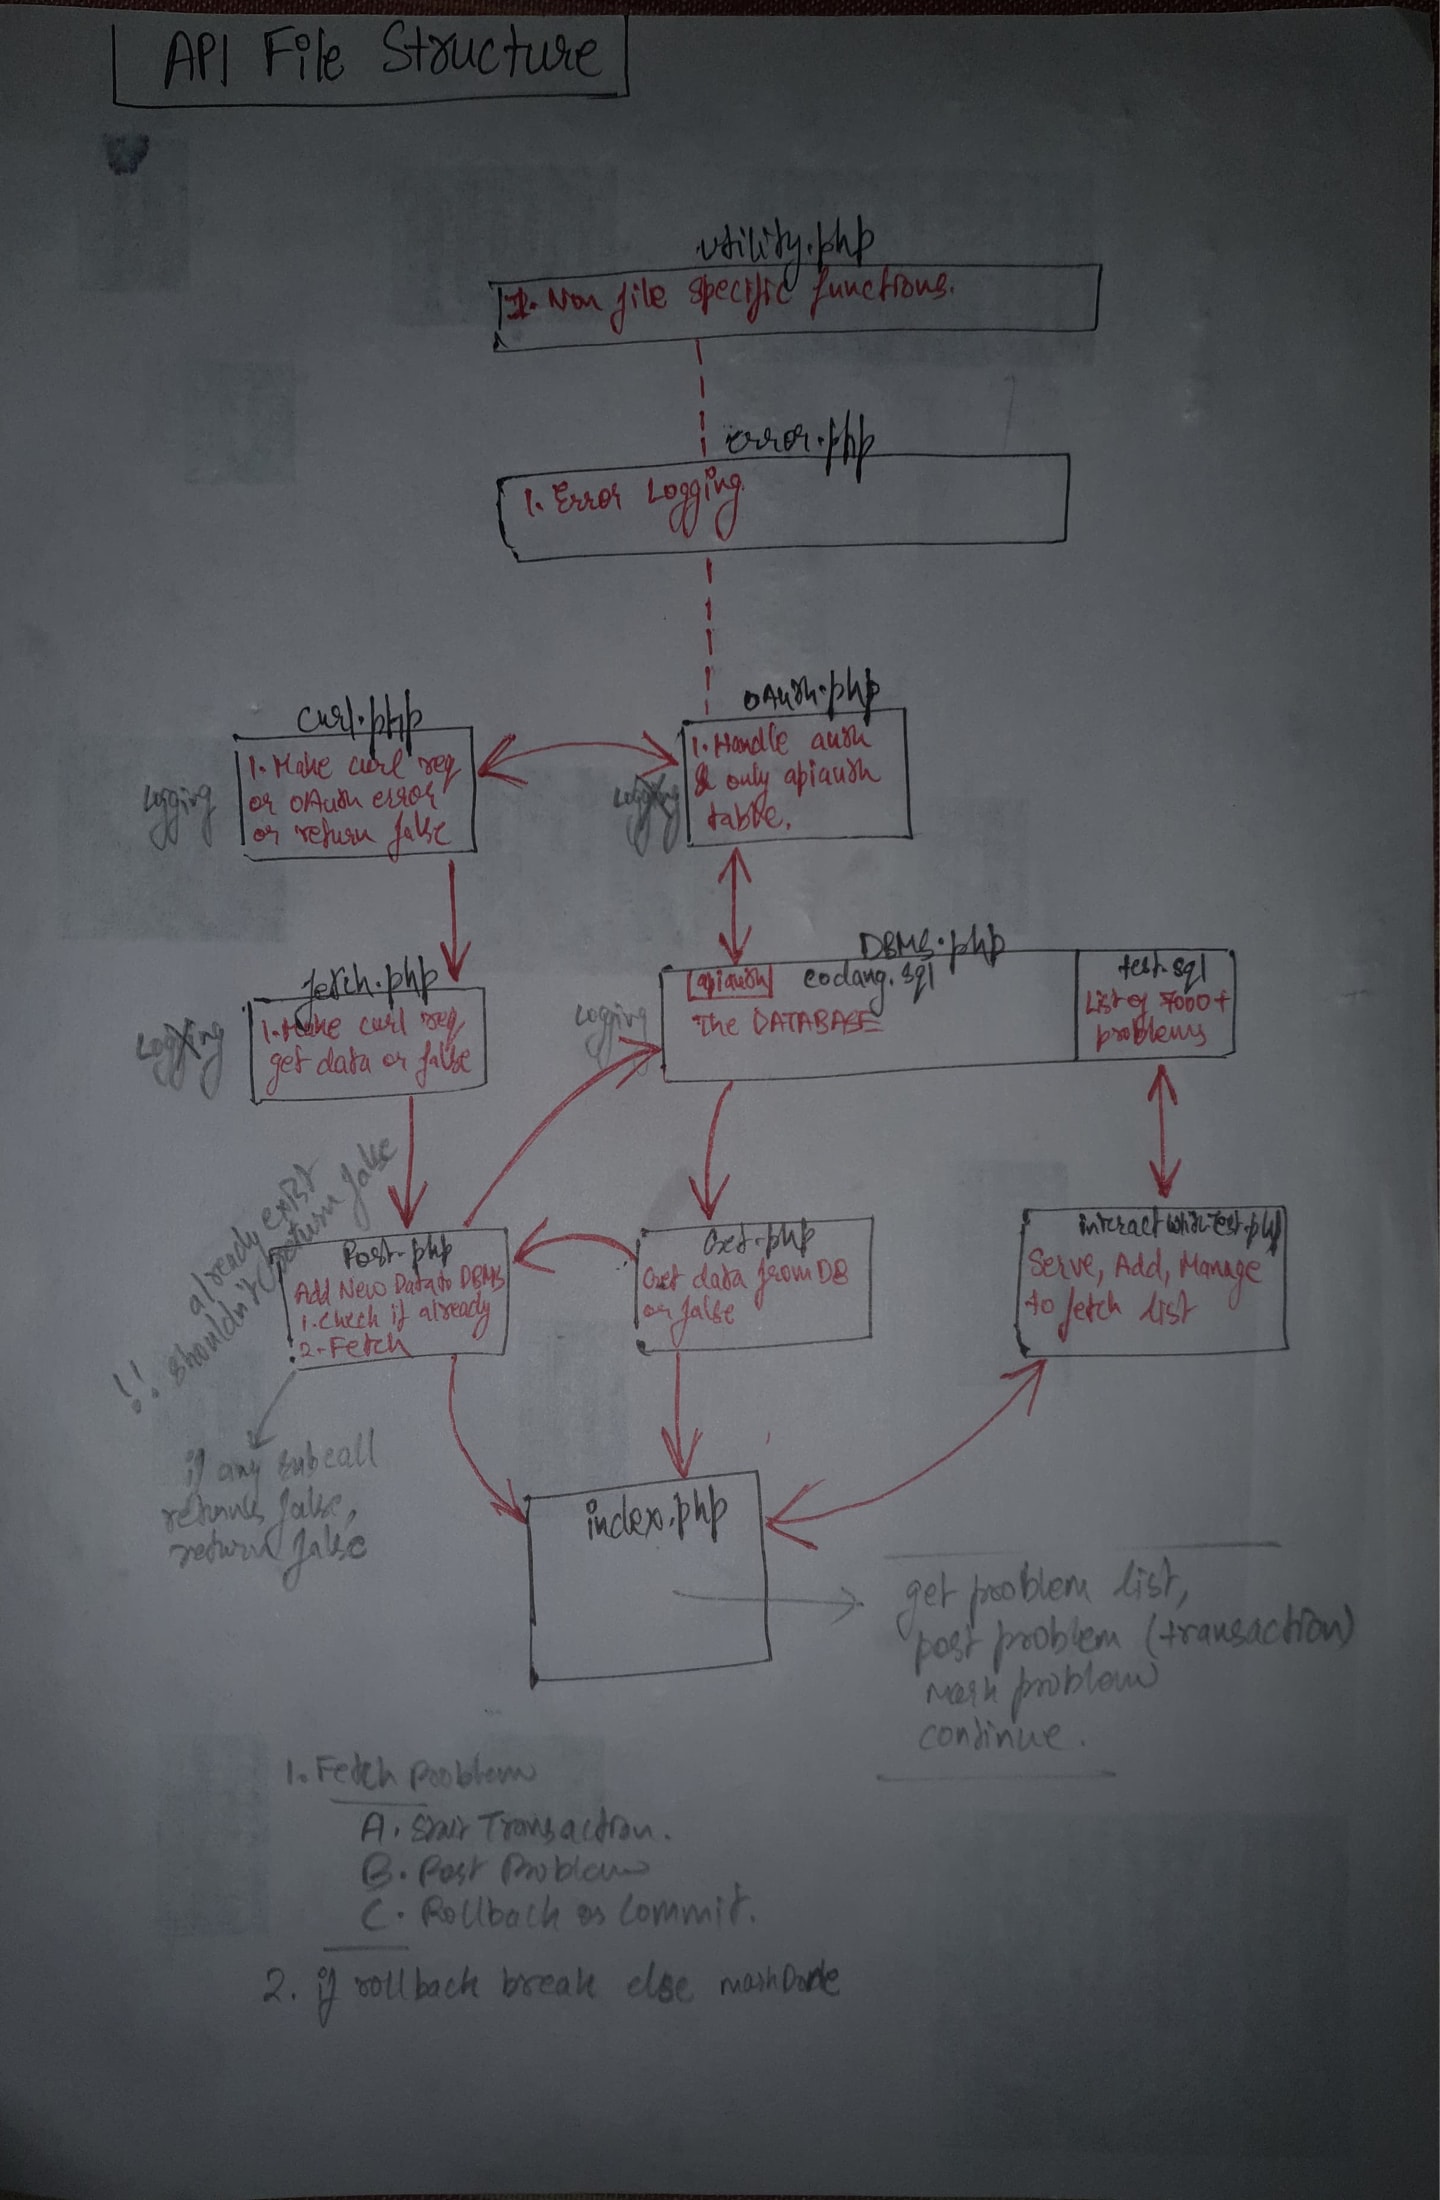 API File Structure
utility.php
1. Non file specific functions.
error.php
1. Error Logging
curl.php
1. Make curl req
or oAuth error
or return false
Logging
oAuth.php
1. Handle auth
& only apiauth
table.
Logging
fetch.php
1. Make curl req,
get data or false
Logging
DBMS.php
apiauth codang.sql
The DATABASE
Logging
test.sql
List of 7000+
problems
already exist
!! shouldn't return false
Post.php
Add New Data to DBMS
1. Check if already
2. Fetch
Get.php
Get data from DB
or false
interactwithTest.php
Serve, Add, Manage
to fetch list
if any subcall
returns false,
return false
index.php
get problem list,
post problem (transaction)
mark problem
continue.
1. Fetch Problem
A. Start Transaction.
B. Post Problem
C. Rollback or Commit.
2. if rollback break else markDone